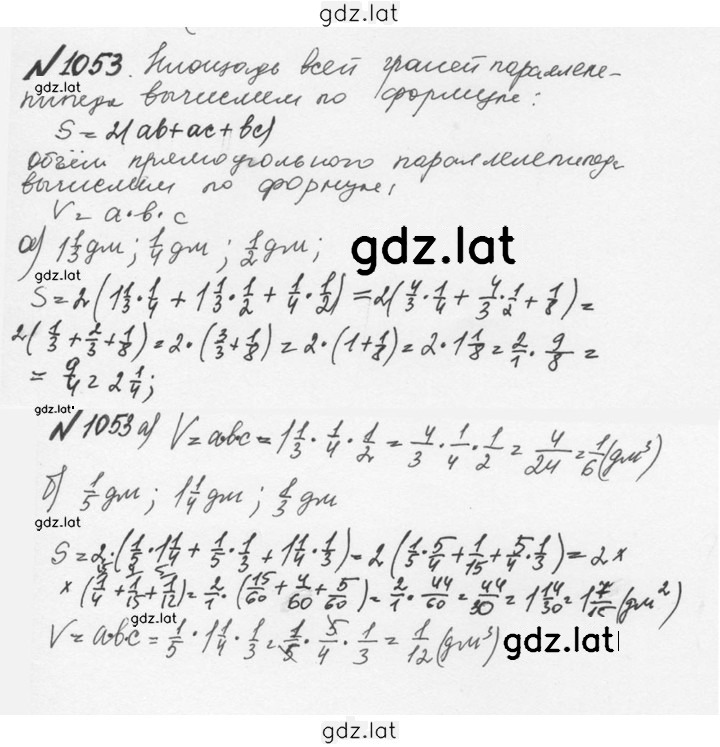 gdz.lat
№1053. Площадь всей граней параллеле-
gdz.lat
пипеда вычислем по формуле:
S = 2(ab+ac+bc)
Объём прямоугольного параллелепипеда
вычислем по формуле,
V = a·b·c
а) 1 1/3 дм; 1/4 дм; 1/2 дм;
gdz.lat
gdz.lat
S = 2(1 1/3 · 1/4 + 1 1/3 · 1/2 + 1/4 · 1/2) = 2(4/3 · 1/4 + 4/3 · 1/2 + 1/8) =
2(1/3 + 2/3 + 1/8) = 2 · (3/3 + 1/8) = 2 · (1 + 1/8) = 2 · 1 1/8 = 2/1 · 9/8 =
= 9/4 = 2 1/4;
gdz.lat
№1053 а) V = a·b·c = 1 1/3 · 1/4 · 1/2 = 4/3 · 1/4 · 1/2 = 4/24 = 1/6 (дм³)
б) 1/5 дм; 1 1/4 дм; 1/3 дм
gdz.lat
S = 2 · (1/5 · 1 1/4 + 1/5 · 1/3 + 1 1/4 · 1/3) = 2 (1/5 · 5/4 + 1/15 + 5/4 · 1/3) = 2 ×
× (1/4 + 1/15 + 5/12) = 2/1 · (15/60 + 4/60 + 5/60) = 2/1 · 44/60 = 44/30 = 1 14/30 = 1 7/15 (дм²)
V = a·b·c = 1/5 · 1 1/4 · 1/3 = 1/5 · 5/4 · 1/3 = 1/12 (дм³)
gdz.lat
gdz.lat